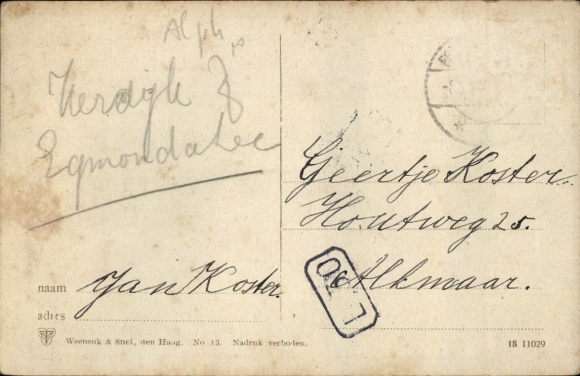 Alph.
Kerdijk &
Egmondalee
Geertje Koster
Houtweg 25.
Alkmaar.
naam Jan Koster.
adres
Weenenk & Snel, den Haag. No 13. Nadruk verboden.
18 11029